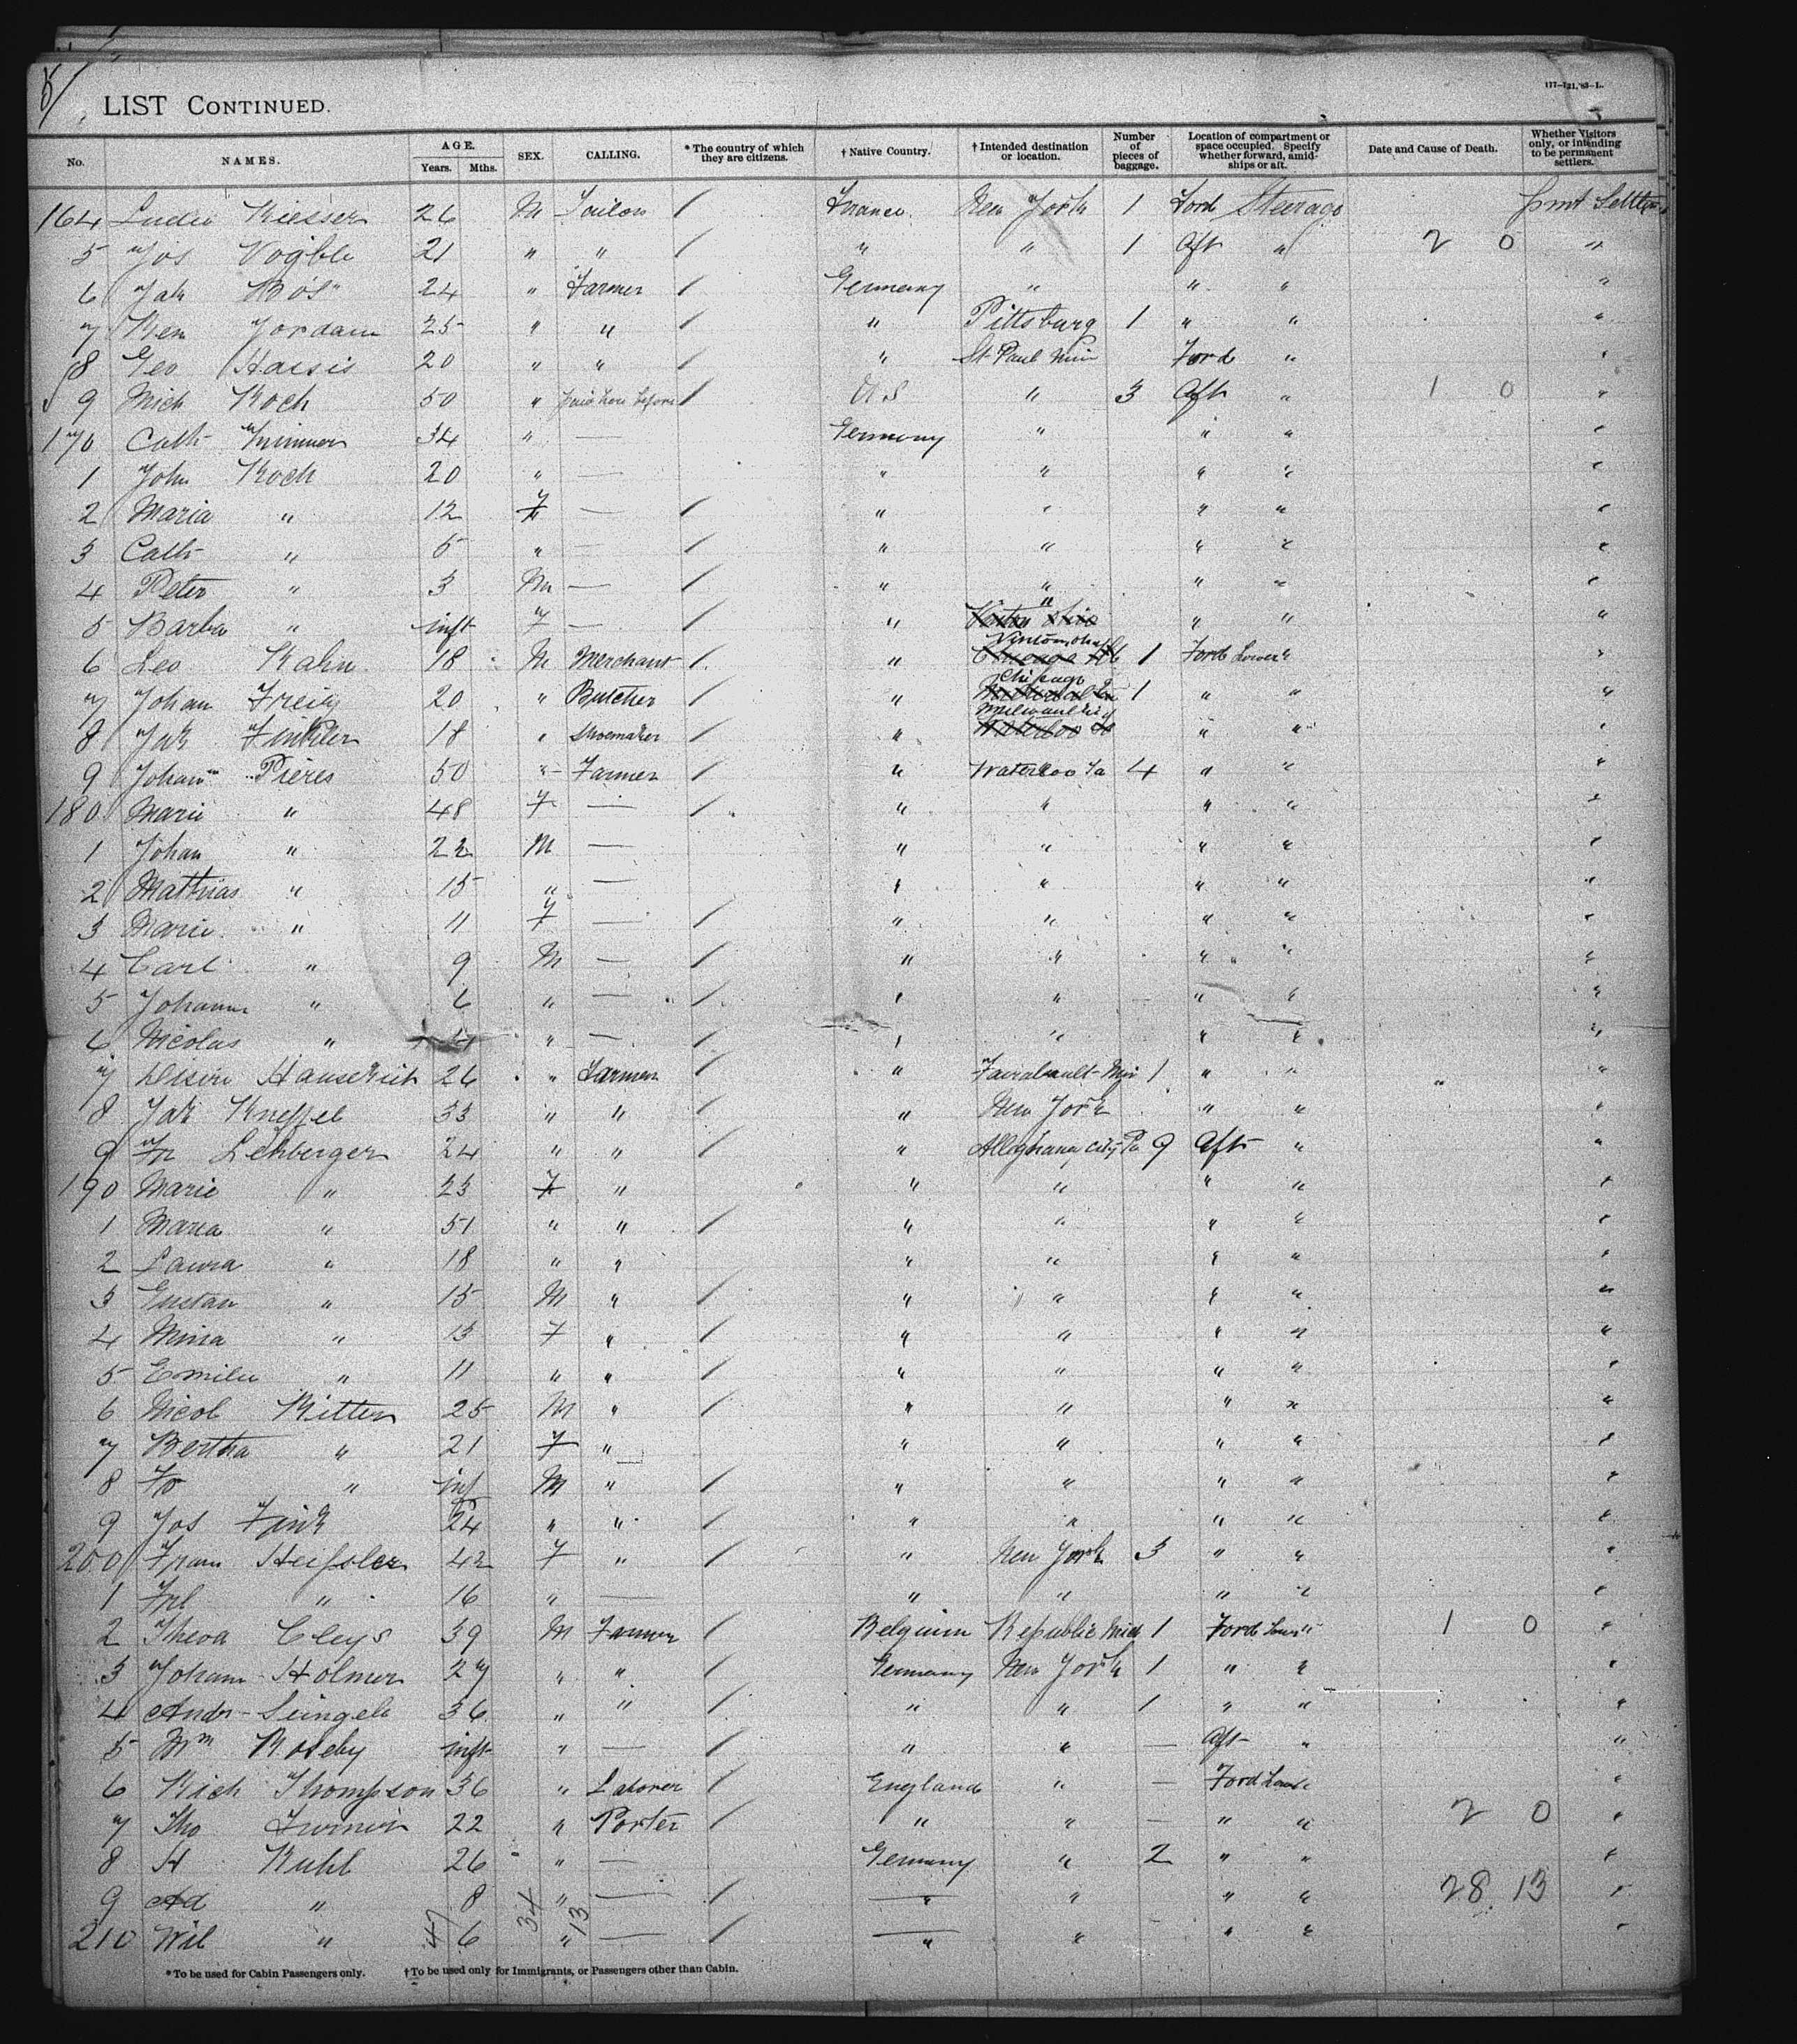 5/
177-721, '83-L.
LIST CONTINUED.
No. NAMES. AGE. Years. Mths. SEX. CALLING. * The country of which they are citizens. † Native Country. † Intended destination or location. Number of pieces of baggage. Location of compartment or space occupied. Specify whether forward, amidships or aft. Date and Cause of Death. Whether Visitors only, or intending to be permanent settlers.
164 26 M / France New York 1 Ford Steerage
5 Jos Vogble 21 " " / " " 1 Aft " 2 0 "
6 Jak Bös 24 " Farmer / Germany " " " "
7 Ben Jordan 25 " " / " Pittsburg 1 " " "
8 Geo Haesis 20 " " / " St Paul Min Ford " "
9 Mich Koch 50 " before / U S " 3 Aft " 1 0 "
170 Cath 34 " — Germany " " " "
1 John Koch 20 " — " " " " "
2 Maria " 12 F — / " " " " "
3 Cath " 5 " — / " " " " "
4 Peter " 3 M — / " " " " "
5 Barba " inft F — / " " " " "
6 Leo Kahn 18 M Merchant / " Vinton, Chicago 1 Ford Lower " "
7 Johan Freig 20 " Butcher / " Chicago 1 " " "
8 Jak Finkler 18 " Shoemaker " Milwaukee Waterloo " " "
9 Johan Pieres 50 " Farmer / " Waterloo Ia 4 " " "
180 Marie " 48 F — / " " " " "
1 Johan " 22 M — " " " " "
2 Mathias " 15 " — " " " " "
3 Marie " 11 F — / " " " " "
4 Carl " 9 M — / " " " " "
5 Johann " 6 " — / " " " " "
6 Nicolas " 4 " — / " " " " "
7 Hauserich 26 " Farmer / " Fairabault Min 1 " " "
8 Jak Kneppel 33 " " / " New York " " "
9 Fr Lehberger 24 " " / " Alleghany City Pa 9 Aft " "
190 Marie " 23 F " " " " " "
1 Maria " 51 " " / " " " " "
2 Laura " 18 " " " " " " "
3 Gustav " 15 M " / " " " " "
4 Mina " 13 F " / " " " " "
5 Emilie " 11 " " / " " " " "
6 Nicol Ritter 25 M " / " " " " "
7 Bertha " 21 F " " " " " "
8 Fr " inf M " / " " " " "
9 Jos Fink 24 " " / " " " " "
200 Frau Heissler 42 F " / " New York 3 " " "
1 Frl " 16 " — " " " " "
2 Theod Cleys 39 M Farmer / Belgium Republic Mich 1 Ford Lower " 1 0 "
3 Johann Holmer 27 " " / Germany New York 1 " " "
4 Andr Seingele 36 " " / " " 1 " " "
5 Wm Roseby inft " — / " " — Aft " "
6 Rich Thompson 36 " Laborer / England " — Ford Lower " "
7 Tho Turner 22 " Porter / " " — " " 2 0 "
8 H Kuhl 26 " — Germany " 2 " " "
9 Ad " 8 " — / " " " " 28 13 "
210 Wil " 6 " — / " " " " "
47 34 13
* To be used for Cabin Passengers only. † To be used only for Immigrants, or Passengers other than Cabin.